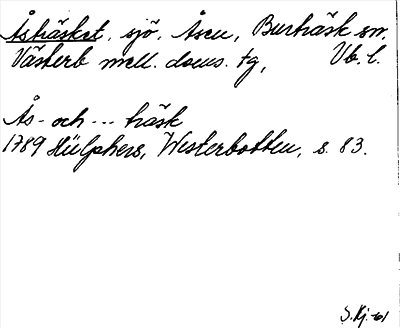 Åsträsket, sjö, Åsen, Burträsk sn,
Västerb mell. doms. tg, Vb. l.
Ås- och --- träsk
1789 Hülphers, Westerbotten, s. 83.
S. Kj. -61